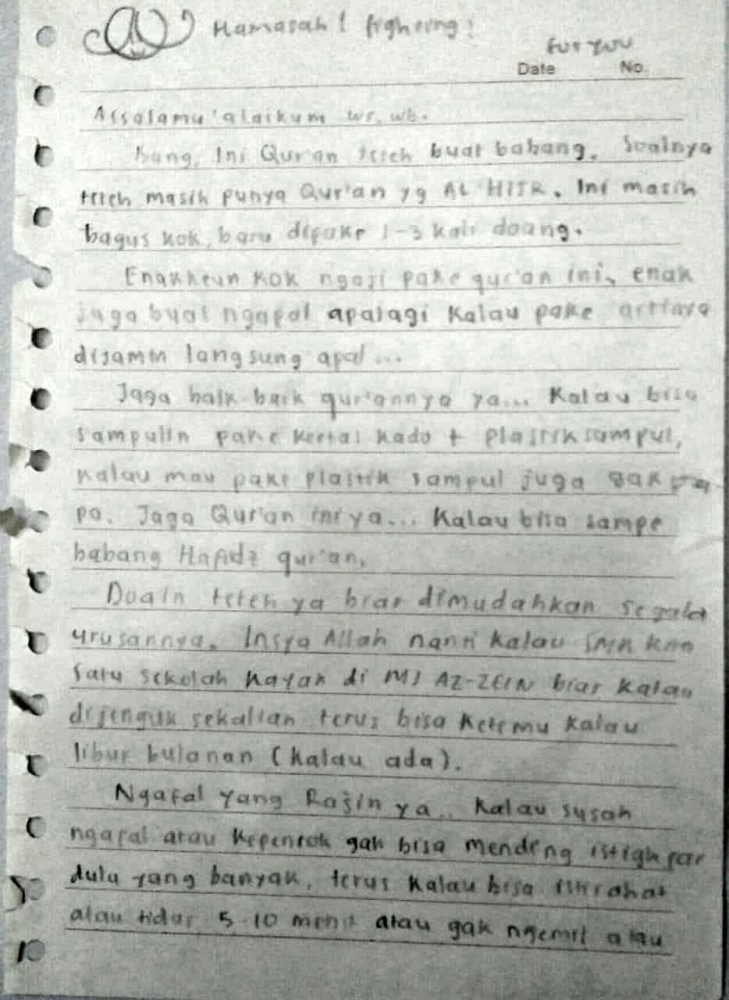 Hamasah! fighting!
For you
Date No
Assalamu'alaikum wr. wb.
Kang, Ini Qur'an teteh buat babang. Soalnya
teteh masih punya Qur'an yg AL HITR. Ini masih
bagus kok, baru dipake 1-3 kali doang.
Enakheun kok ngaji pake qur'an ini, enak
juga buat ngapal apalagi kalau pake artinya
dijamin langsung apal...
Jaga baik-baik qur'annya ya... Kalau bisa
sampulin pake kertas kado + plastik sampul,
kalau mau pake plastik sampul juga gak
pa. Jaga Qur'an ini ya... Kalau bisa sampe
babang Hafidz qur'an.
Doain teteh ya biar dimudahkan segala
urusannya. Insya Allah nanti kalau
satu sekolah kayak di MI AZ-ZEIN biar kalau
dijenguk sekalian terus bisa ketemu kalau
libur bulanan (kalau ada).
Ngafal yang Rajin ya.. Kalau susah
ngapal atau kepentok gak bisa mending istighfar
dulu yang banyak, terus kalau bisa istirahat
atau tidur 5-10 menit atau gak ngemil atau